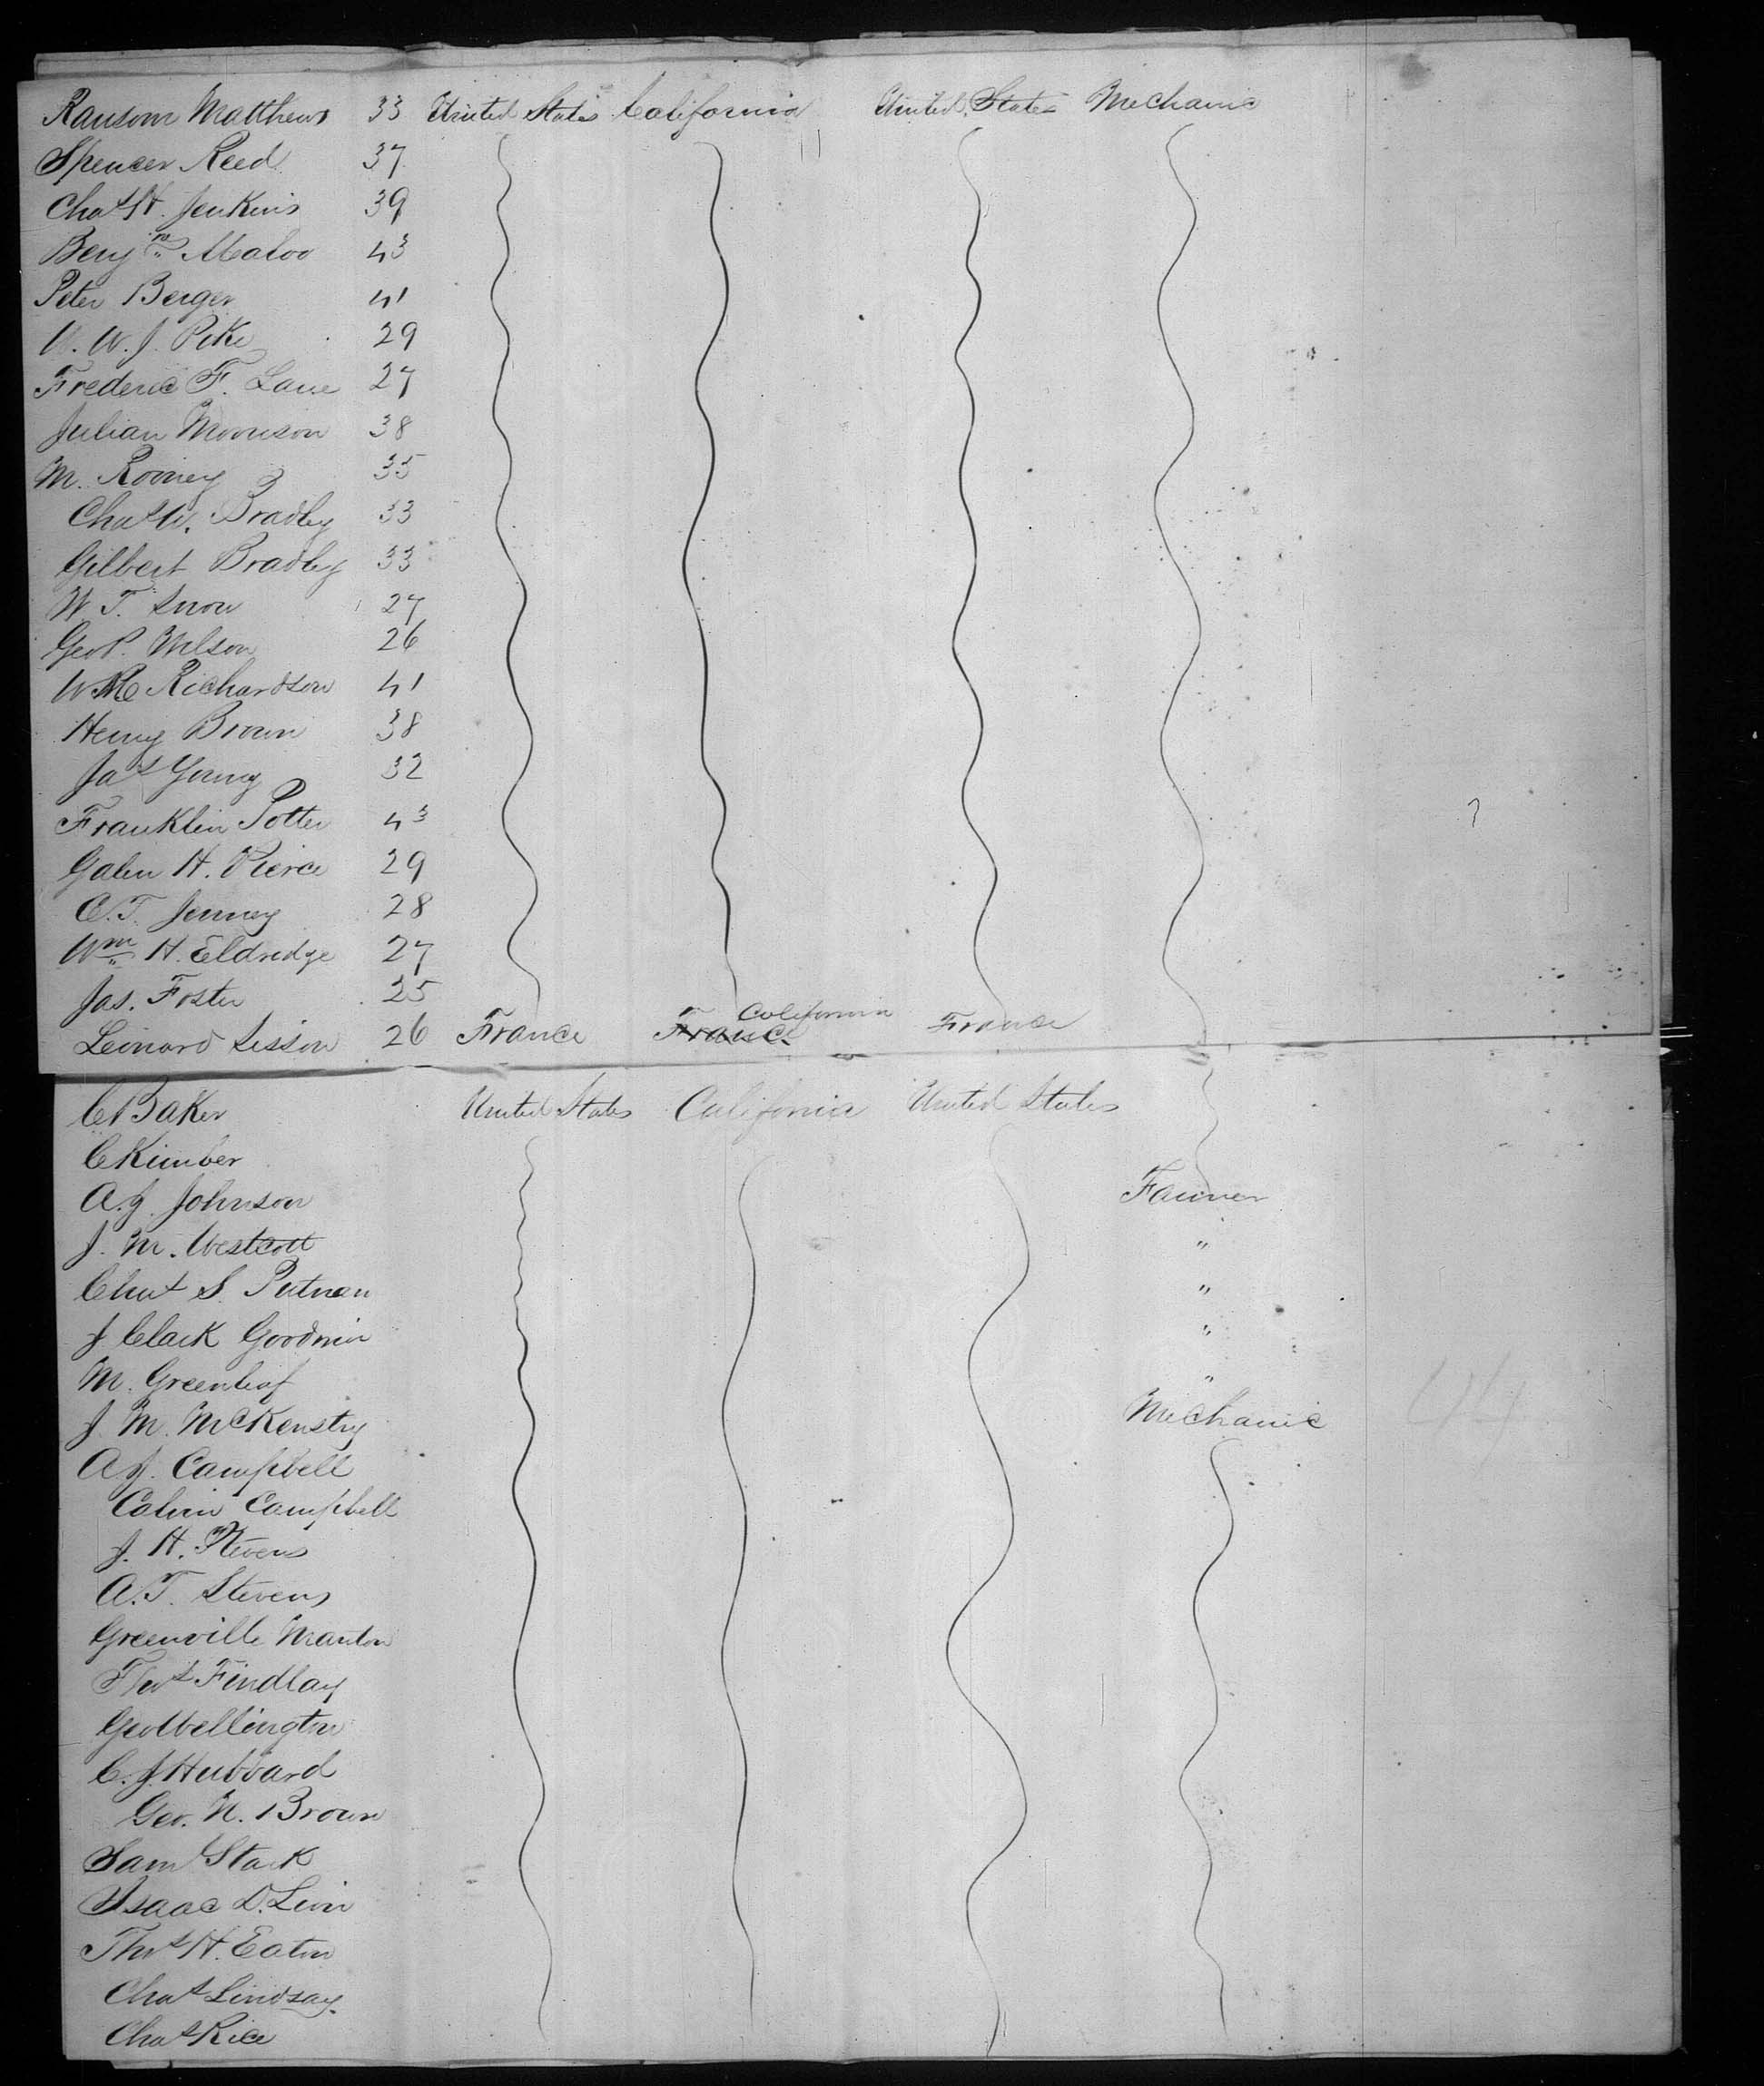 Ransom Matthews 33 United States California United States Mechanic
Spencer Reed 37
Chas H. Jenkins 39
Benjn 43
Peter Berger 41
W. J. Pike 29
Frederic F. Lane 27
Julian Morrison 38
M. Rooney 35
Chas W. Bradley 33
Gilbert Bradley 33
W T. Snow 27
Geo P. Wilson 26
Richardson 41
Henry Brown 38
Jas Young 32
Franklin Potter 43
Galen H. Pierce 29
C. T. Jenney 28
Wm H. Eldredge 27
Jas. Foster 25
California
Leonard Sisson 26 France France France
Baker United States California United States
C Kimber
A. J. Johnson Farmer
J. M. Westcott "
Chas S. Putnam "
J Clark Goodwin "
M. Greenleaf "
J. M. McKenstry Mechanic
A J. Campbell
Calvin Campbell
J. H. Stevens
A. T. Stevens
Greenville Manton
Thos Findlay
Geo Wellington
C. J. Hubbard
Geo. N. Brown
Saml Stark
Isaac D.
Thos H. Eaton
Chas Lindsay.
Chas Rice